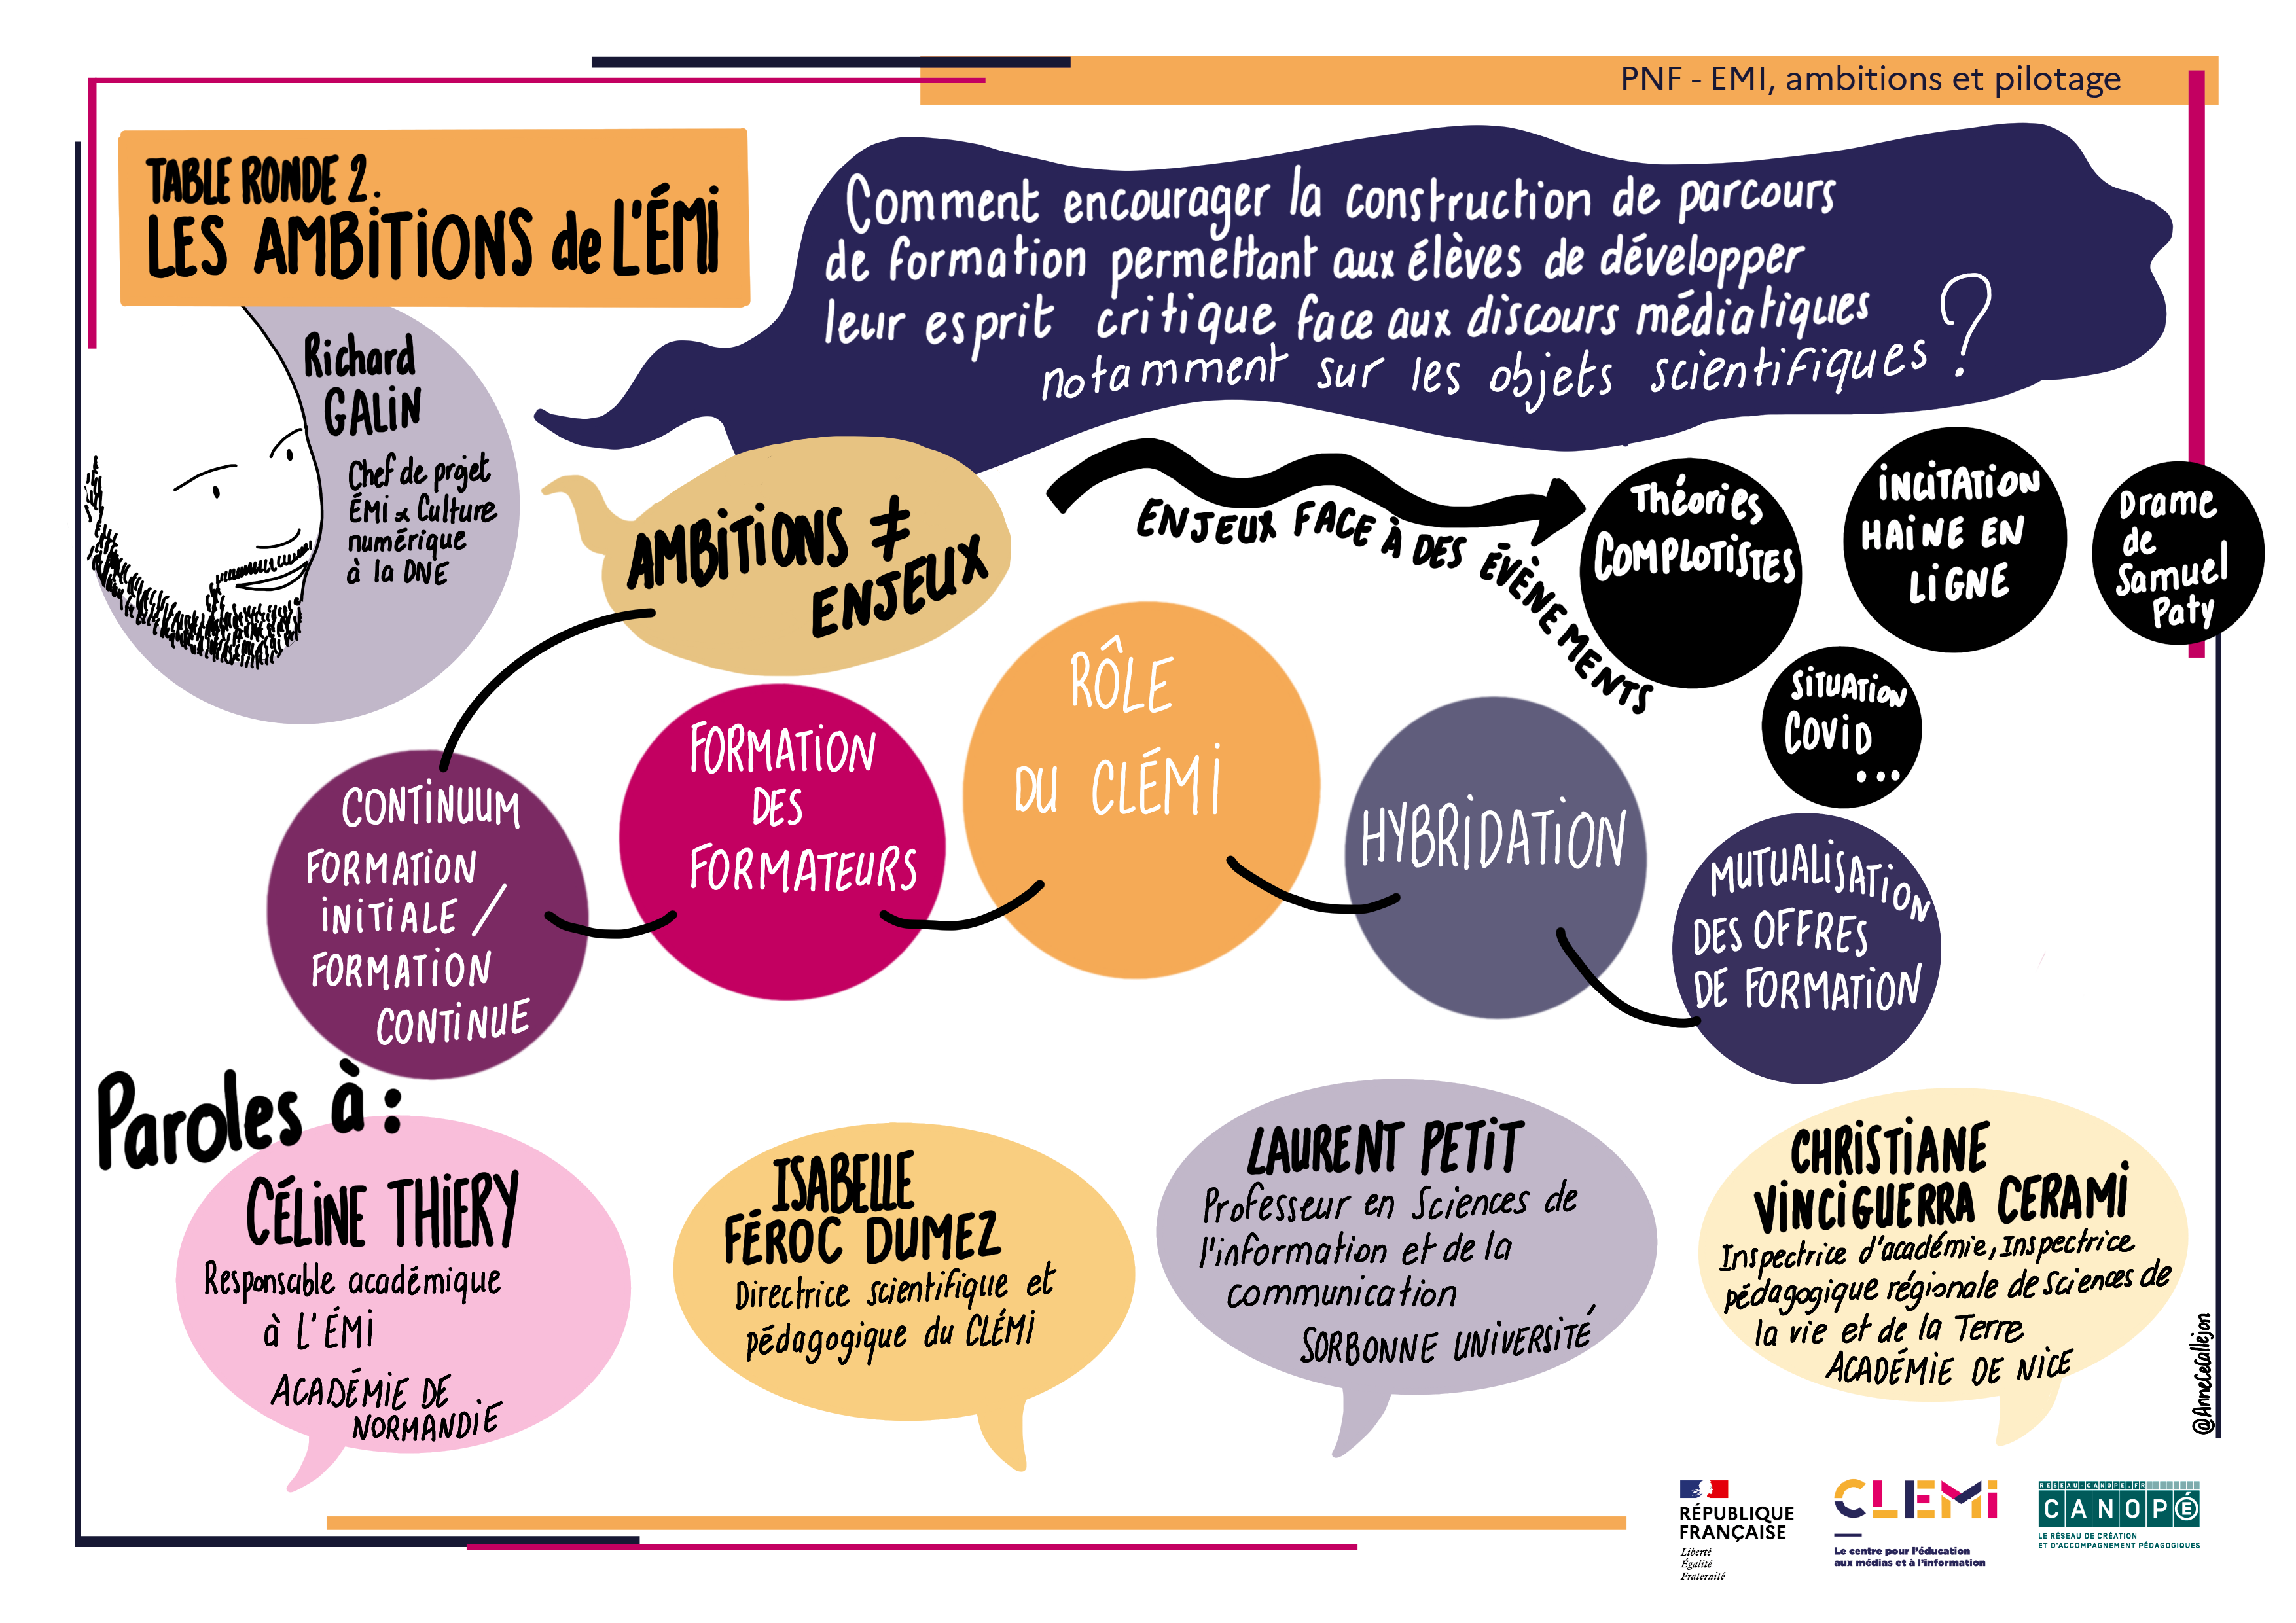 PNF - EMI, ambitions et pilotage
TABLE RONDE 2.
LES AMBITIONS de L'ÉMI
Comment encourager la construction de parcours
de formation permettant aux élèves de développer
leur esprit critique face aux discours médiatiques
notamment sur les objets scientifiques ?
Richard
GALIN
Chef de projet
ÉMI & Culture
numérique
à la DNE
AMBITIONS ≠
ENJEUX
ENJEUX FACE À DES ÉVÈNEMENTS
Théories
COMPLOTISTES
INCITATION
HAINE EN
LIGNE
Drame
de
Samuel
Paty
SITUATION
COVID
...
CONTINUUM
FORMATION
INITIALE /
FORMATION
CONTINUE
FORMATION
DES
FORMATEURS
RÔLE
DU CLÉMI
HYBRIDATION
MUTUALISATION
DES OFFRES
DE FORMATION
Paroles à :
CÉLINE THIERY
Responsable académique
à L'ÉMI
ACADÉMIE DE
NORMANDIE
ISABELLE
FÉROC DUMEZ
Directrice scientifique et
pédagogique du CLÉMI
LAURENT PETIT
Professeur en Sciences de
l'information et de la
communication
SORBONNE UNIVERSITÉ
CHRISTIANE
VINCIGUERRA CERAMI
Inspectrice d'académie, Inspectrice
pédagogique régionale de Sciences de
la vie et de la Terre
ACADÉMIE DE NICE
@AnneCeCallejon
RÉPUBLIQUE
FRANÇAISE
Liberté
Égalité
Fraternité
CLEMI
Le centre pour l'éducation
aux médias et à l'information
RESEAU-CANOPE.FR
CANOPÉ
LE RÉSEAU DE CRÉATION
ET D'ACCOMPAGNEMENT PÉDAGOGIQUES